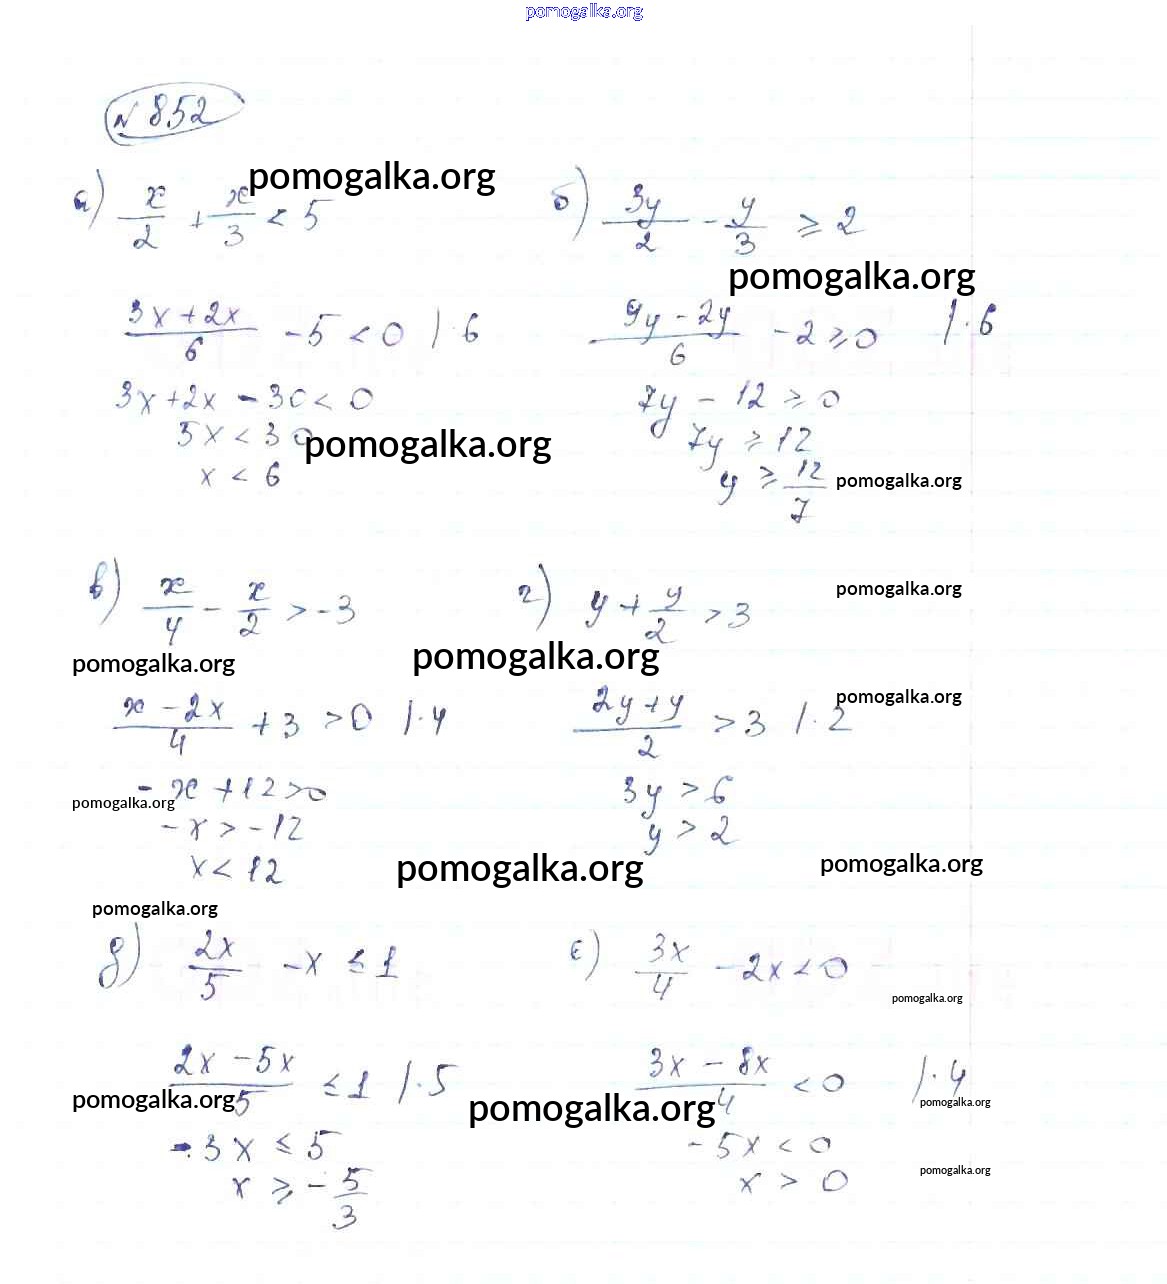 pomogalka.org
№ 852
а) x/2 + x/3 < 5
pomogalka.org
б) 3y/2 - y/3 ⩾ 2
pomogalka.org
(3x + 2x)/6 - 5 < 0 | · 6
(9y - 2y)/6 - 2 ⩾ 0 | · 6
3x + 2x - 30 < 0
7y - 12 ⩾ 0
5x < 30
pomogalka.org
7y ⩾ 12
x < 6
y ⩾ 12/7
pomogalka.org
в) x/4 - x/2 > -3
г) y + y/2 > 3
pomogalka.org
pomogalka.org
pomogalka.org
(x - 2x)/4 + 3 > 0 | · 4
(2y + y)/2 > 3 | · 2
pomogalka.org
- x + 12 > 0
3y > 6
pomogalka.org
- x > - 12
y > 2
x < 12
pomogalka.org
pomogalka.org
pomogalka.org
д) 2x/5 - x ⩽ 1
є) 3x/4 - 2x < 0
pomogalka.org
(2x - 5x)/5 ⩽ 1 | · 5
(3x - 8x)/4 < 0 | · 4
pomogalka.org
pomogalka.org
pomogalka.org
- 3x ⩽ 5
- 5x < 0
x ⩾ - 5/3
x > 0
pomogalka.org